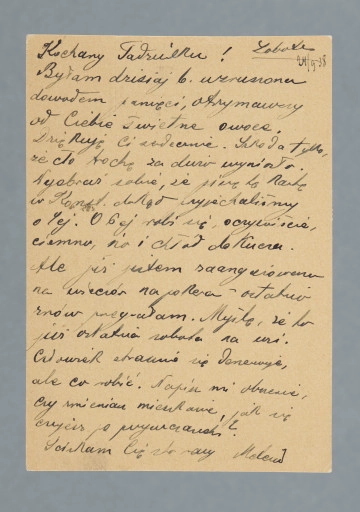 Kochany Tadziulku! Sobota
24/9-38
Byłam dzisiaj b. wzruszona
dowodem pamięci, otrzymawszy
od Ciebie świetne owoce.
Dziękuję Ci serdecznie. Szkoda tylko,
że Cię trochę za dużo wyniosło.
Wyobraź sobie, że piszę tę kartkę
w dokąd wyjechaliśmy
o 4ej. O 6ej robi się, oczywiście,
ciemno, no i chłód dokucza.
Ale już jestem zaangażowana
na wieczór na pokera - ostatnio
znów przegrałam. Myślę, że to
już ostatnia sobota na wsi.
Człowiek strasznie się denerwuje,
ale co robić. Napisz mi obszernie,
czy zmieniasz mieszkanie, jak się
czujesz po
Ściskam Cię sto razy